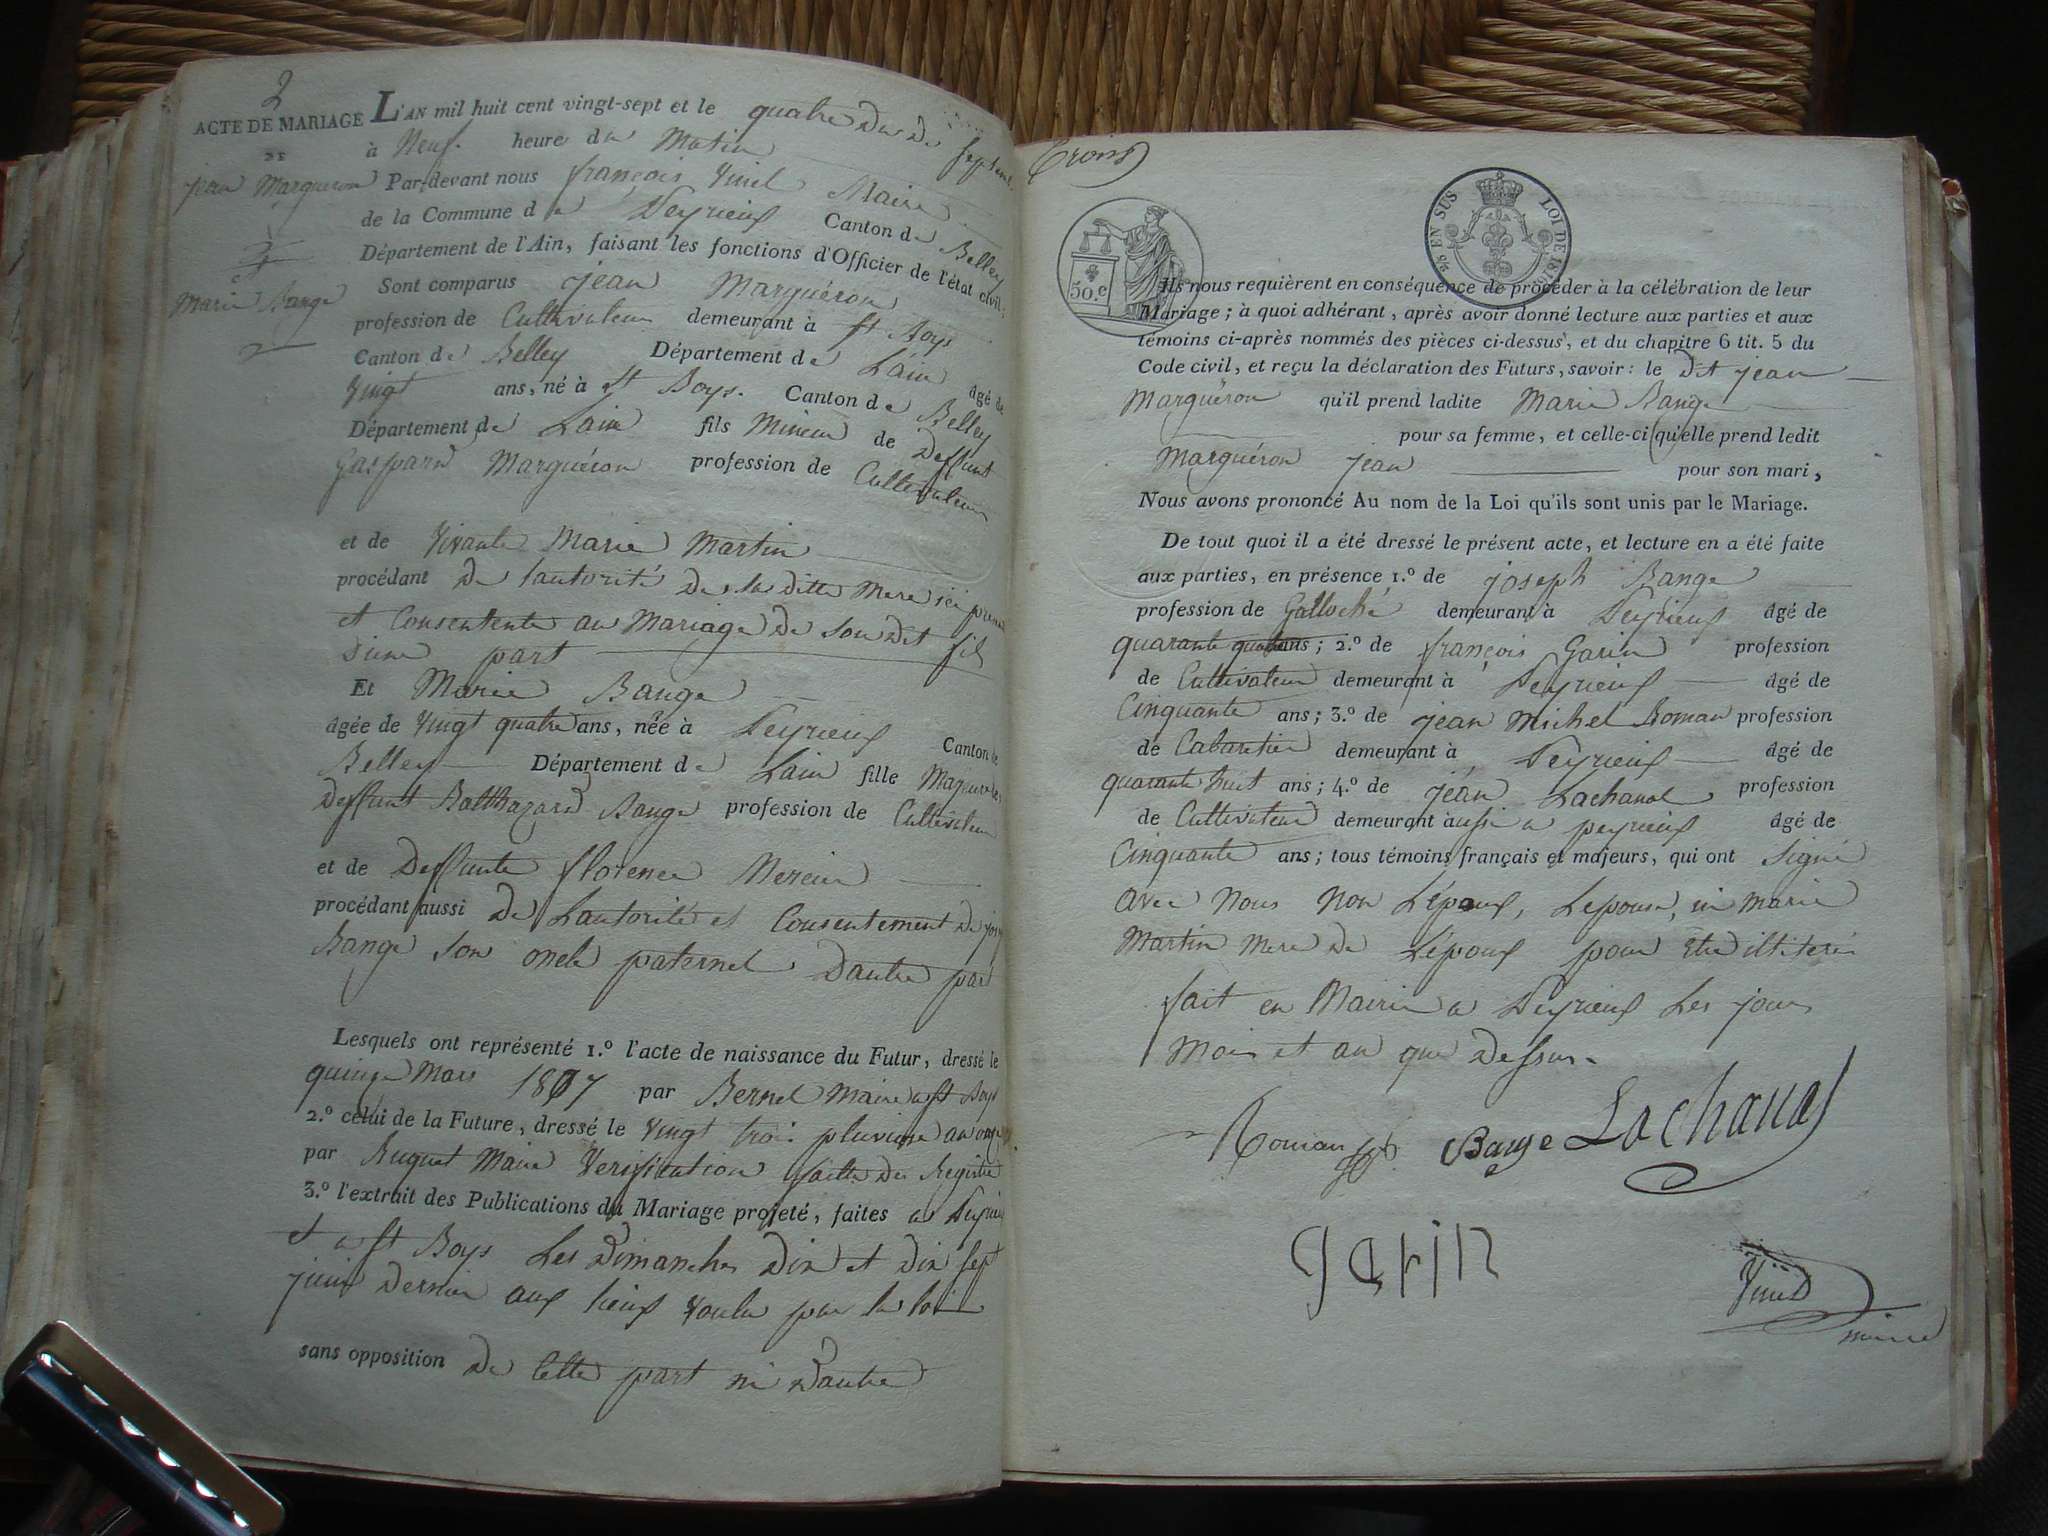 2
ACTE DE MARIAGE
DE
jean Marguéron
et
Marie Bange
L'AN mil huit cent vingt-sept et le quatre du De Septem
à Neuf heure du Matin
Par-devant nous françois Maire
de la Commune de Peyrieux Canton de Belley
Département de l'Ain, faisant les fonctions d'Officier de l'état civil,
Sont comparus jean Marguéron
profession de Cultivateur demeurant à St Boys
Canton de Belley Département de Lain âgé de
Vingt ans, né à St Boys. Canton de Belley
Département de Lain fils Mineur de Deffunt
Gaspard Marguéron profession de Cultivateur
et de Vivante Marie Martin
procédant De lautorité De sa ditte Mere ici
et Consentente au Mariage De son Dit fil
Dune part
Et Marie Bange
âgée de Vingt quatre ans, née à Peyrieux Canton de
Belley Département de Lain fille Majeure de
Deffunt Balthazard Bange profession de Cultivateur
et de Deffunte florence Mercier
procédant aussi De Lautorité et Consentement De
Bange son oncle paternel Dautre part
Lesquels ont représenté 1.º l'acte de naissance du Futur, dressé le
quinze Mars 1807 par Bernel Maire a St Boys
2.º celui de la Future, dressé le Vingt trois pluviose an onze
par Ruguet Maire Verification faitte des Registre
3.º l'extrait des Publications du Mariage projeté, faites a Peyrieu
et a St Boys Les Dimanches Dix et Dix sept
juin Dernier aux lieux Voulu par la loi
sans opposition De Cette part ni Dautre
Trois
50.c
25 EN SUS LOI DE 1816
Ils nous requièrent en conséquence de procéder à la célébration de leur
Mariage ; à quoi adhérant, après avoir donné lecture aux parties et aux
témoins ci-après nommés des pièces ci-dessus, et du chapitre 6 tit. 5 du
Code civil, et reçu la déclaration des Futurs, savoir : le dit jean
Marguéron qu'il prend ladite Marie Bange
pour sa femme, et celle-ci qu'elle prend ledit
Marguéron jean pour son mari,
Nous avons prononcé Au nom de la Loi qu'ils sont unis par le Mariage.
De tout quoi il a été dressé le présent acte, et lecture en a été faite
aux parties, en présence 1.º de joseph Bange
profession de Galloché demeurant à Peyrieux âgé de
quarante quatre ans ; 2.º de françois Garin profession
de Cultivateur demeurant à Peyrieux âgé de
Cinquante ans ; 3.º de jean Michel Roman profession
de Cabaretier demeurant à Peyrieux âgé de
quarante huit ans ; 4.º de jean Lachanal profession
de Cultivateur demeurant aussi a peyrieux âgé de
Cinquante ans ; tous témoins français et majeurs, qui ont Signé
avec Nous Non L'époux, Lepouse, ni marie
Martin mere De L'époux pour etre illiteré
fait en Mairie a Peyrieux Les jours
Mois et an que Dessus.
Roman Bange Lachanal
garin
maire